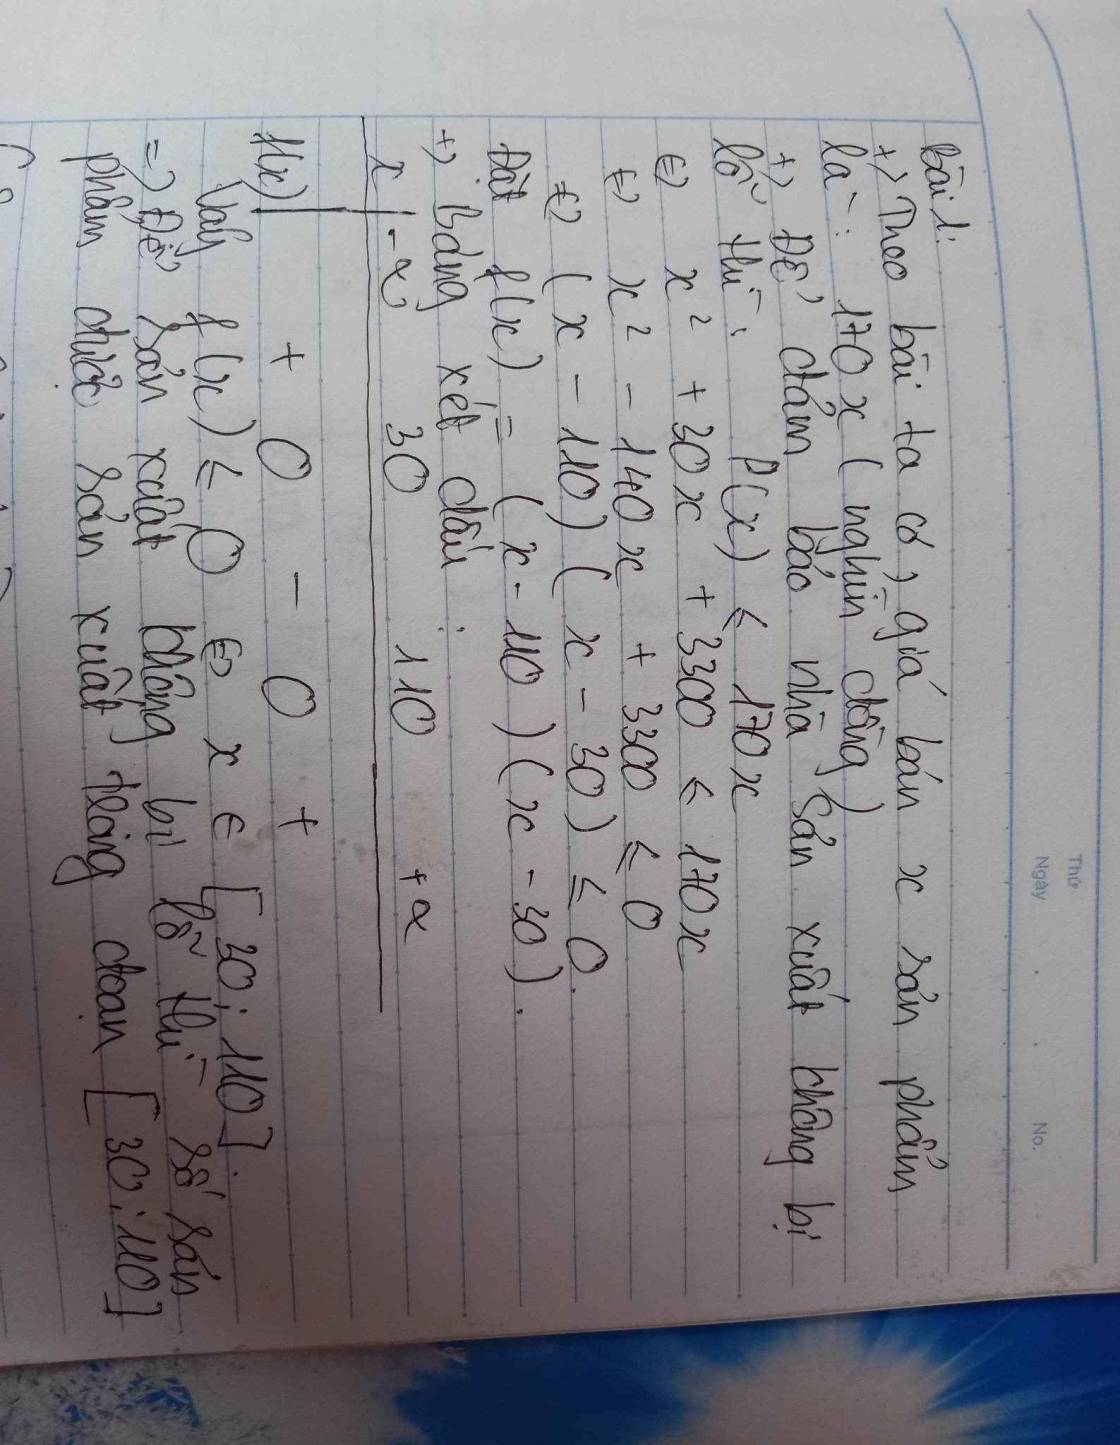 Thứ
Ngày . . No.
bài 1:
+) Theo bài ta có, giá bán x sản phẩm
là : 170x ( nghìn đồng)
+) Để đảm bảo nhà sản xuất không bị
lỗ thì : P(x) ≤ 170x
<=> x² + 30x + 3300 ≤ 170x
<=> x² - 140x + 3300 ≤ 0
<=> (x - 110) (x - 30) ≤ 0.
Đặt f(x) = (x - 110) (x - 30).
+) Bảng xét dấu :
x -∞ 30 110 +∞
f(x) + 0 - 0 +
Vậy f(x) ≤ 0 <=> x ∈ [30; 110].
=> Để sản xuất không bị lỗ thì số sản
phẩm được sản xuất trong đoạn [30; 110]